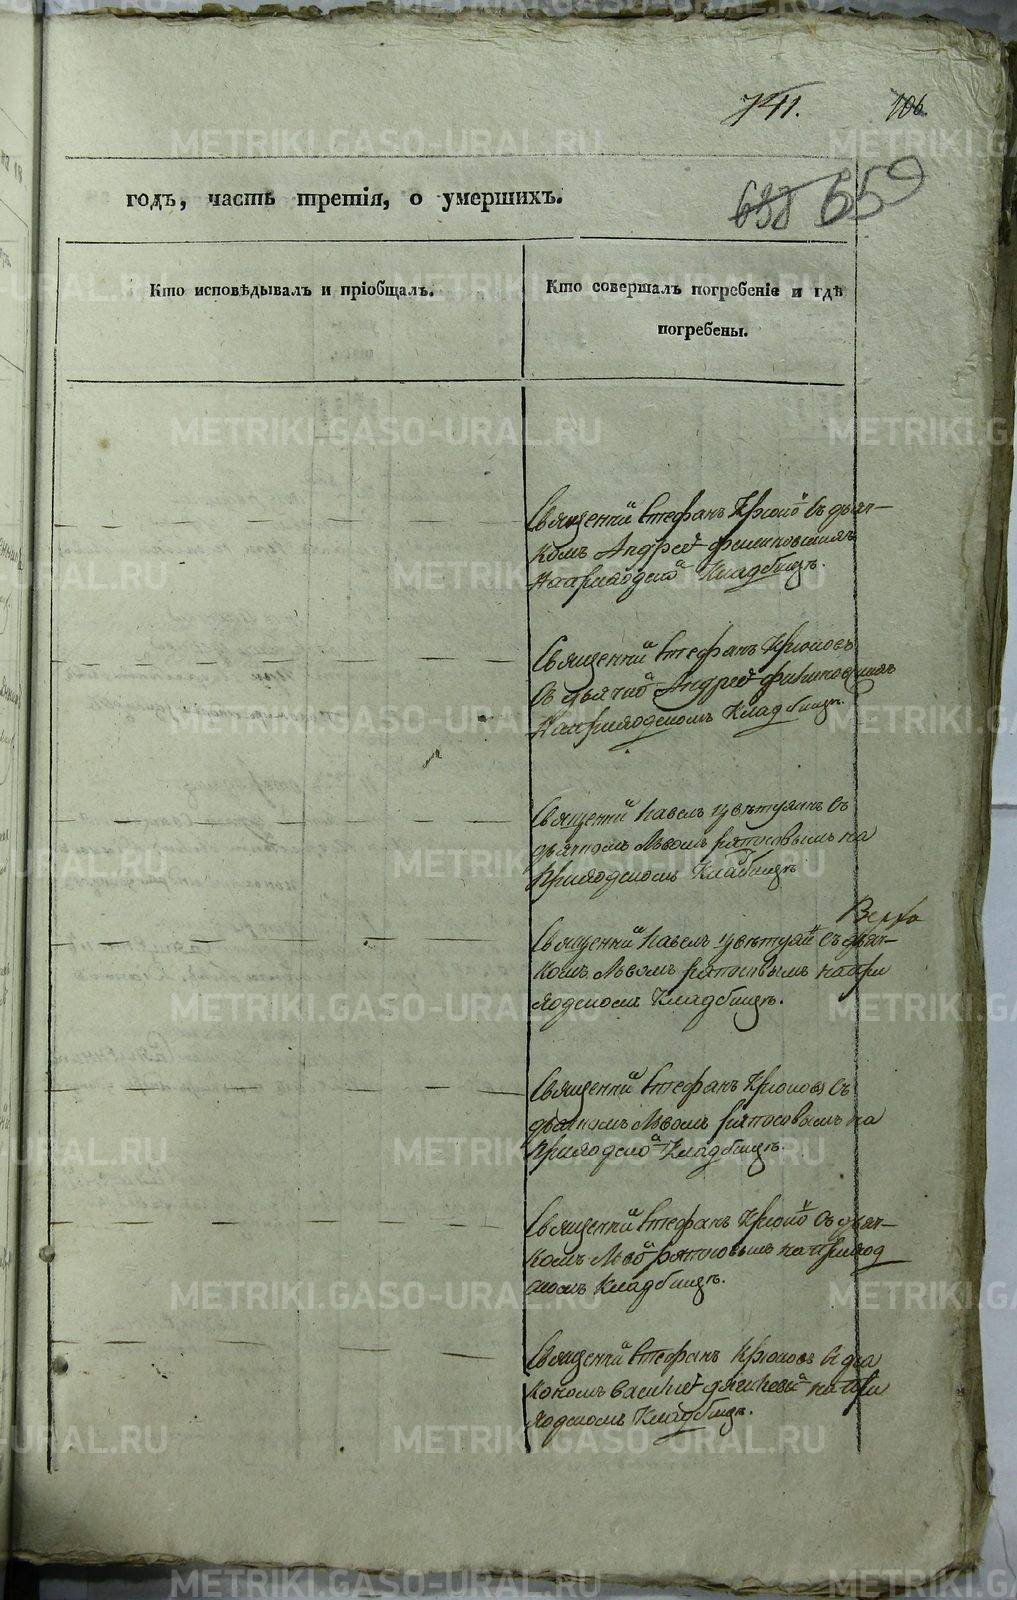 741. 106.
годъ, часть третія, о умершихъ.
638 659
Кто исповѣдывалъ и пріобщалъ.
Кто совершалъ погребеніе и гдѣ
погребены.
Священни Стефанъ Крюко съ дьяч-
комъ Андрее
Наприходско Кладбищѣ.
Священни Стефанъ Крюковъ
Съ дьячко Андрее
Наприходскомъ Кладбищѣ.
Священни Павелъ Цвѣтухинъ съ
дьячкомъ Львомъ на
Приходскомъ Кладбищѣ
Верхо
Священни Павелъ Цвѣтухи съ дьяч-
комъ Львомъ напри
ходскомъ Кладбищѣ.
Священни Стефанъ Крюковъ съ
дьячкомъ Львомъ на
Приходско Кладбищѣ.
Священни Стефанъ Крюко съ дьяч-
комъ Льво наприход
скомъ Кладбищѣ.
Священни Стефанъ Крюковъ съ діа
кономъ Василіе напри
ходскомъ Кладбищѣ.
METRIKI.GASO-URAL.RU